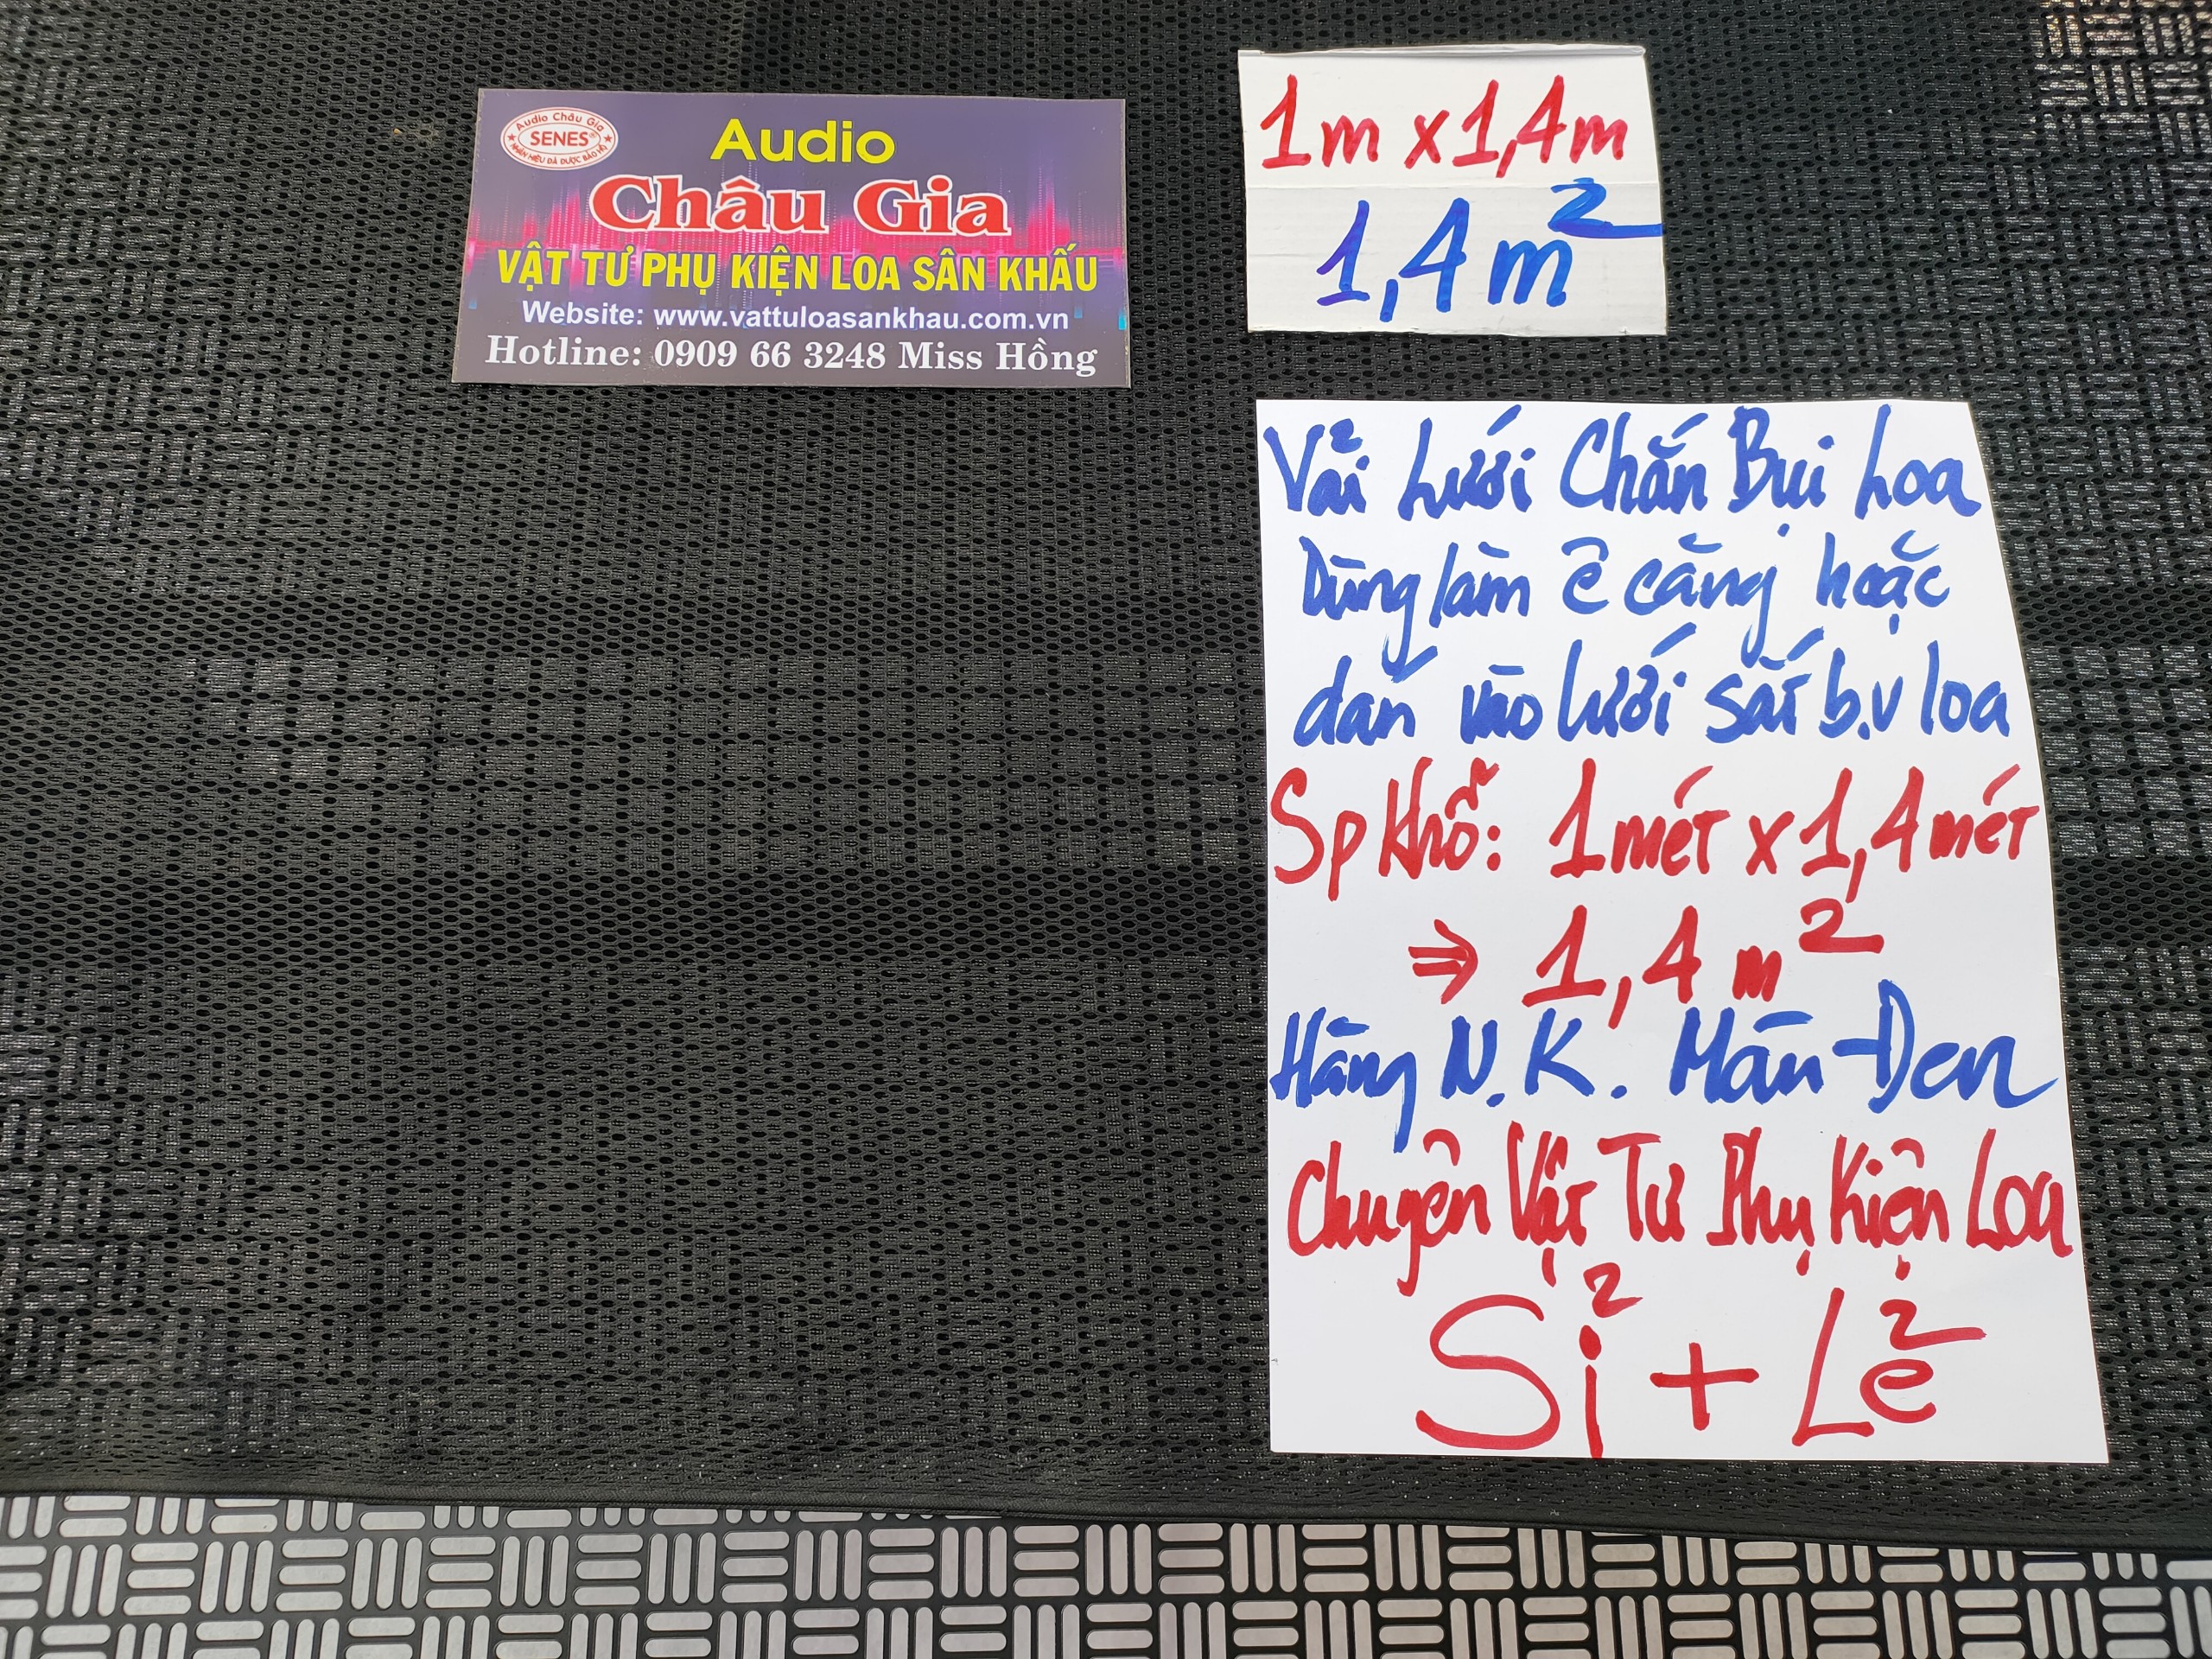 Audio Châu Gia
SENES®
NHÃN HIỆU ĐÃ ĐƯỢC BẢO HỘ
Audio
Châu Gia
VẬT TƯ PHỤ KIỆN LOA SÂN KHẤU
Website: www.vattuloasankhau.com.vn
Hotline: 0909 66 3248 Miss Hồng
1m x 1,4m
1,4m²
Vải Lưới Chắn Bụi Loa
Dùng làm ê căng hoặc
dán vào lưới sắt b.v loa
Sp Khổ: 1 mét x 1,4 mét
⇒ 1,4 m²
Hàng N.K. Màu Đen
Chuyên Vật Tư Phụ Kiện Loa
Sỉ + Lẻ